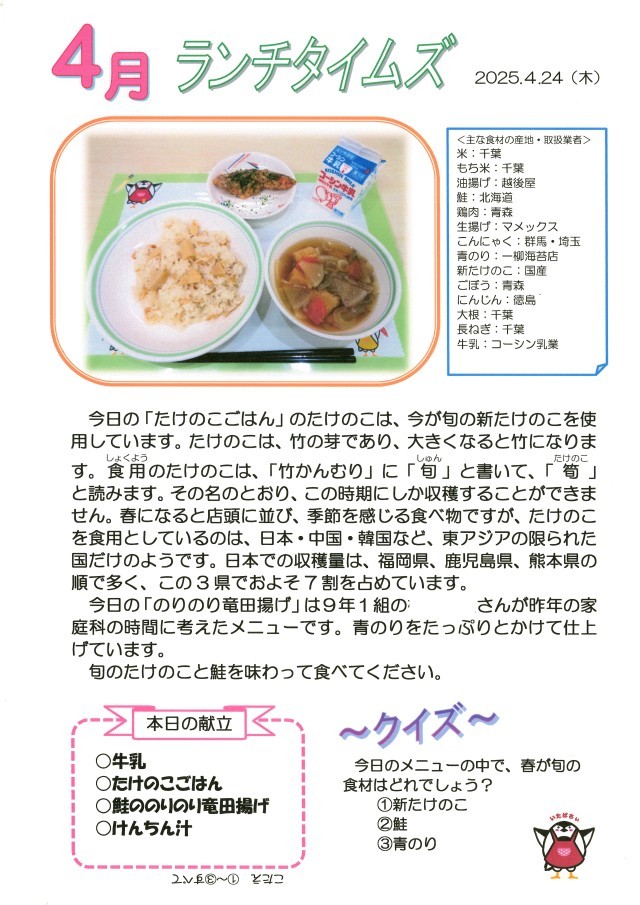 4月 ランチタイムズ 2025.4.24(木)
<主な食材の産地・取扱業者>
米:千葉
もち米:千葉
油揚げ:越後屋
鮭:北海道
鶏肉:青森
生揚げ:マメックス
こんにゃく:群馬・埼玉
青のり:一柳海苔店
新たけのこ:国産
ごぼう:青森
にんじん:徳島
大根:千葉
長ねぎ:千葉
牛乳:コーシン乳業
コーシン牛乳
今日の「たけのこごはん」のたけのこは、今が旬の新たけのこを使
用しています。たけのこは、竹の芽であり、大きくなると竹になりま
しょくよう しゅん たけのこ
す。食用のたけのこは、「竹かんむり」に「旬」と書いて、「筍」
と読みます。その名のとおり、この時期にしか収穫することができま
せん。春になると店頭に並び、季節を感じる食べ物ですが、たけのこ
を食用としているのは、日本・中国・韓国など、東アジアの限られた
国だけのようです。日本での収穫量は、福岡県、鹿児島県、熊本県の
順で多く、この3県でおよそ7割を占めています。
今日の「のりのり竜田揚げ」は9年1組の さんが昨年の家
庭科の時間に考えたメニューです。青のりをたっぷりとかけて仕上
げています。
旬のたけのこと鮭を味わって食べてください。
本日の献立
○牛乳
○たけのこごはん
○鮭ののりのり竜田揚げ
○けんちん汁
こたえ ①~③すべて
~クイズ~
今日のメニューの中で、春が旬の
食材はどれでしょう?
①新たけのこ
②鮭
③青のり